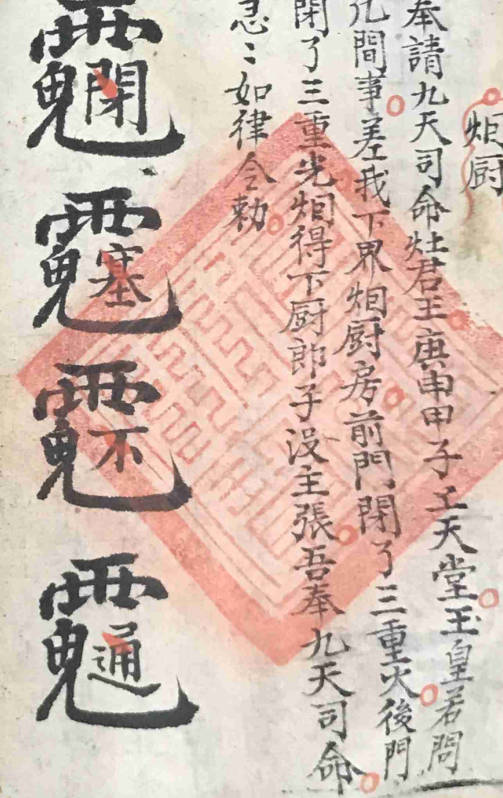 炟厨
奉請九天司命灶君王庚申甲子上天堂玉皇若問
凡間事差我下界炟厨房前門閉了三重火後門
閉了三重光炟得下厨郎子没主張吾奉九天司命
急〻如律令勅
閉
塞
不
通